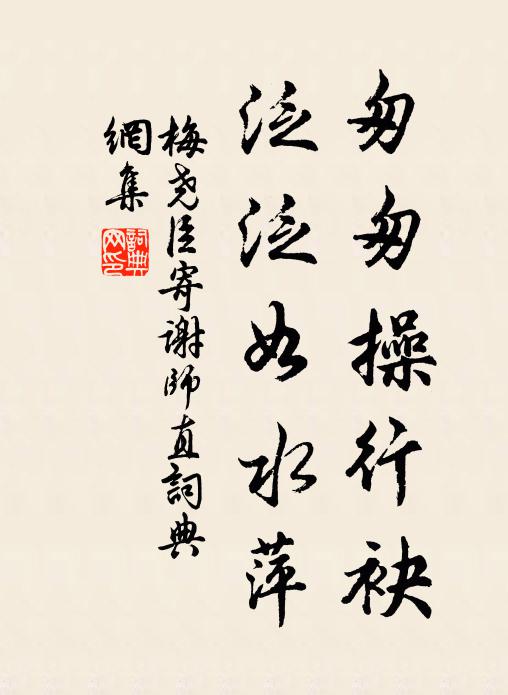 匆匆操行袂
泛泛如水萍
梅堯臣寄謝師直詞典
網集
詞典網印